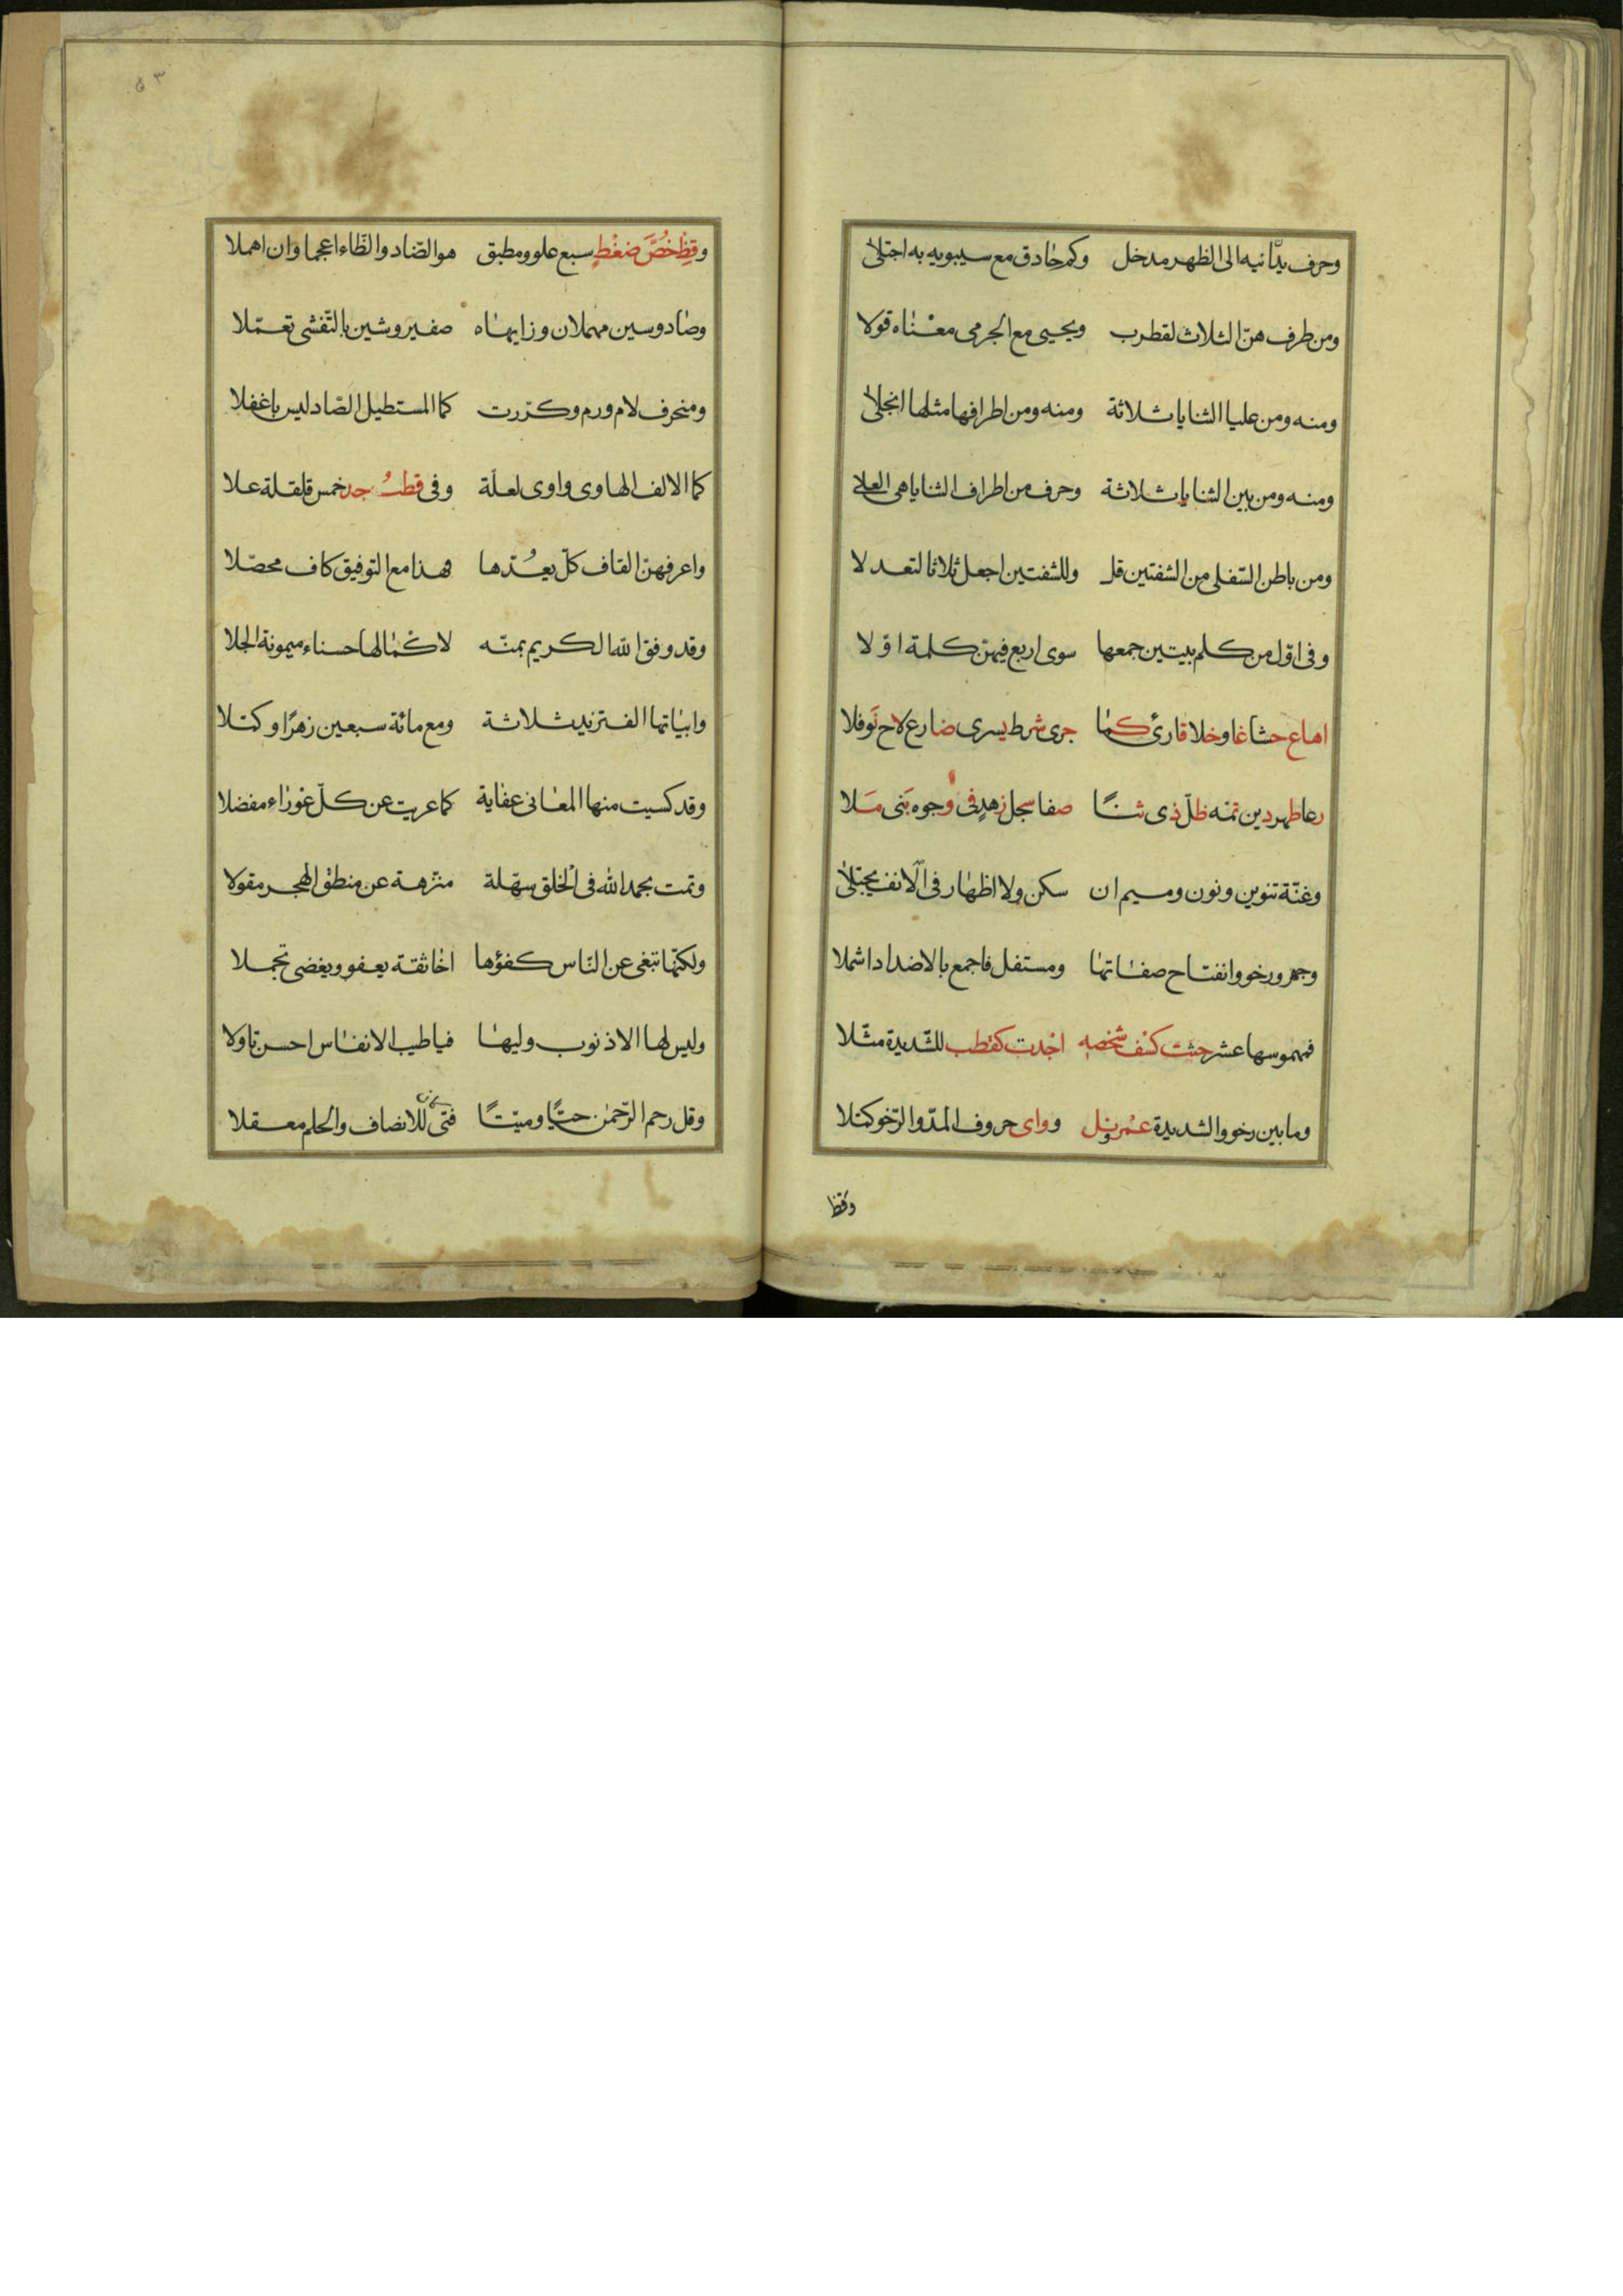 وحرف يدانيه الى الظهر مدخل وكم حاذق مع سيبويه به اجتلى
ومن طرف هن الثلاث لقطرب ويحيى مع الجرمى معناه قولا
ومنه ومن عليا الثنايا ثلاثة ومنه ومن اطرافها مثلها انجلى
ومنه ومن بين الثنايا ثلاثة وحرف من اطراف الثنايا هى العلى
ومن باطن السّفلى من الشفتين قل وللشفتين اجعل ثلاثا لتعدلا
وفى اوّل من كلم بيتين جمعها سوى اربع فيهنّ كلمة اوّلا
اهاع حشا غاو خلا قارئ كما جرى شرط يسرى ضارع لاح نَوفلا
رعا طهر دين تمّه ظلّ ذى ثنًا صفا سجل زهدٍ فى وجوه بَنى مَلا
وغنّة تنوين ونون وميم ان سكن ولا اظهار فى الانف يجتلى
وجهر ورخو وانفتاح صفاتها ومستفل فاجمع بالاضداد اشملا
فمهموسها عشر حثت كسف شخصه اجدت كقطب للشّديدة مثّلا
وما بين رخو والشديدة عمر نل وواى حروف المدّ والرّخو كمّلا
وقظ
٥٣
وقِظْ خُصَّ ضغْطٍ سبع علو ومطبق هو الضّاد والظّاء اعجما وان اهملا
وصاد وسين مهملان وزايها صفير وشين بالتّفشى تعمّلا
ومنحرف لام ورم وكرّرت كما المستطيل الضّاد ليس باغفلا
كما الالف الهاوى واوى لعلّة وفى قطبُ جد خمس قلقلة علا
واعرفهنّ القاف كلّ يعُدّها فهذا مع التوفيق كاف محصّلا
وقد وفق الله الكريم بمنّه لاكمالها حسناء ميمونة الجلا
وابياتها الف تزيد ثلاثة ومع مائة سبعين زهرًا وكمّلا
وقد كسيت منها المعانى عناية كما عريت عن كلّ عوراء مفضلا
وتمت بحمد الله فى الخلق سهلة منزهة عن منطق الهجر مقولا
ولكنّها تبغى عن النّاس كفؤها اخا ثقة يعفو ويغضى تجملا
وليس لها الا ذنوب وليها فيا طيب الانفاس احسن تاولا
وقل رحم الرّحمٰن حيًّا وميّتًا فتى للانصاف والحلم معقلا